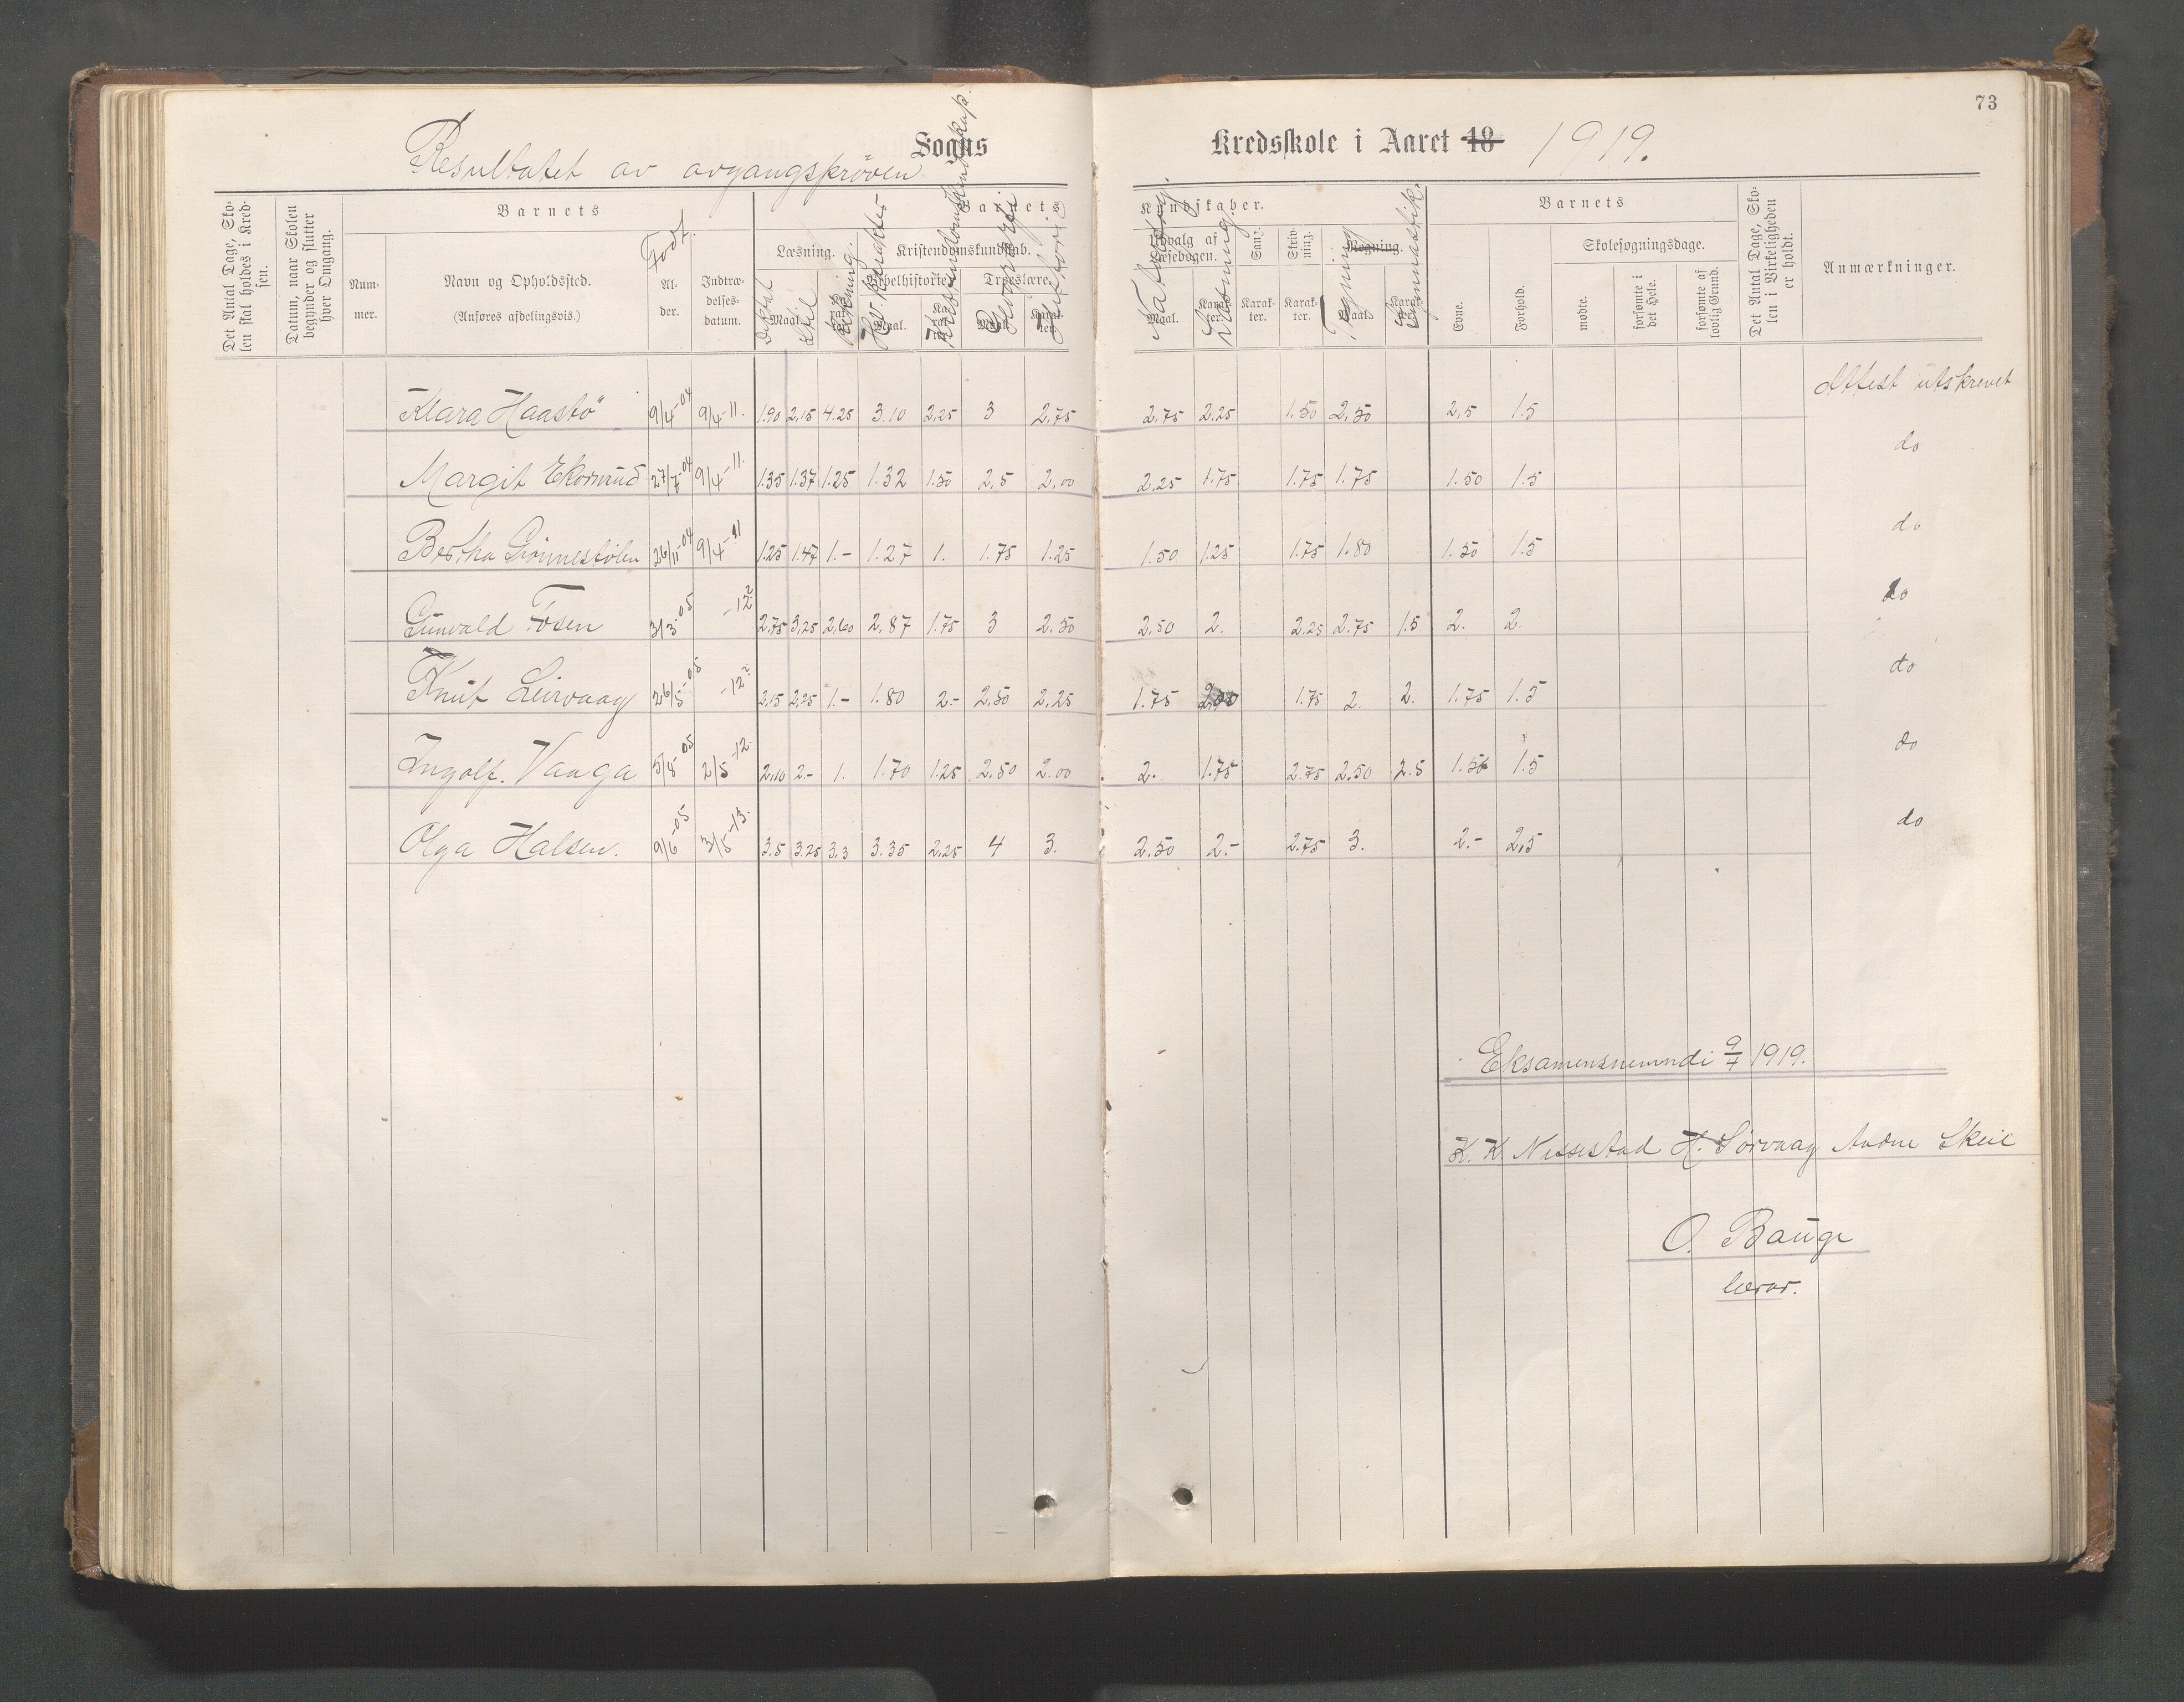 73
Resultatet av avgangsprøven Sogns Kredsskole i Aaret 18 1919.
Det Antal Dage, Sko-
len skal holdes i Kred-
sen.
Datum, naar Skolen
begynder og slutter
hver Omgang.
Barnets
Num-
mer.
Navn og Opholdssted.
(Anføres afdelingsvis.)
Født.
Al-
der.
Indtræ-
delses-
datum.
Barnets
Læsning.
Kristendomskundskab.
Bibelhistorie.
Troeslære.
Maal.
Diktat
Stil
Maal.
Maal.
Karak-
ter.
Historie
Kundskaber.
Udvalg af
Læsebogen.
Sang.
Skriv-
ning.
Regning.
Maal.
Karak-
ter.
Karak-
ter.
Karak-
ter.
Maal.
Karak-
ter.
Tegning
Gymnastik.
Barnets
Evne.
Forhold.
Skolesøgningsdage.
mødte.
forsømte i
det Hele.
forsømte af
lovlig Grund.
Det Antal Dage, Sko-
len i Virkeligheden
er holdt.
Anmærkninger.
Klara Haastø 9/4-04 9/4-11. 1.90 2,15 4.25 3.10 2,25 3 2,75 2.75 2,25 1.50 2,50 2,5 1.5 Attest utskrevet
Margit Ekornrud 27/7-04 9/4-11. 1.35 1.37 1.25 1.32 1.50 2,5 2,00 2,25 1.75 1.75 1.75 1.50 1.5 do
Bertha 26/11-04 9/4-11 1.25 1.47 1.- 1.27 1. 1.75 1.25 1.50 1.25 1.75 1.80 1.50 1.5 do
Gunvald Fosen 3/3-05 -12? 2.75 3,25 2,60 2,87 1.75 3 2.50 2,50 2. 2.25 2.75 1.5 2. 2. do
Knut Leirvaag 26/5-05 -12? 2,15 2,25 1.- 1.80 2.- 2,50 2,25 1.75 2,00 1.75 2. 2. 1.75 1.5 do
Ingolf. Vaaga 5/5-05 2/5-12. 2,10 2.- 1. 1.70 1.25 2,50 2.00 2. 1.75 2.75 2,50 2.5 1.50 1.5 do
Olga Halsen. 9/6-05 3/5-13. 3.5 3.25 3,3 3.35 2,25 4 3. 2.50 2.- 2.75 3. 2.- 2,5 do
Eksamensnemndi 9/4 1919.
K. K. Nessestad H. Sørvaag Andne Skeie
O. Bauge
lærar.